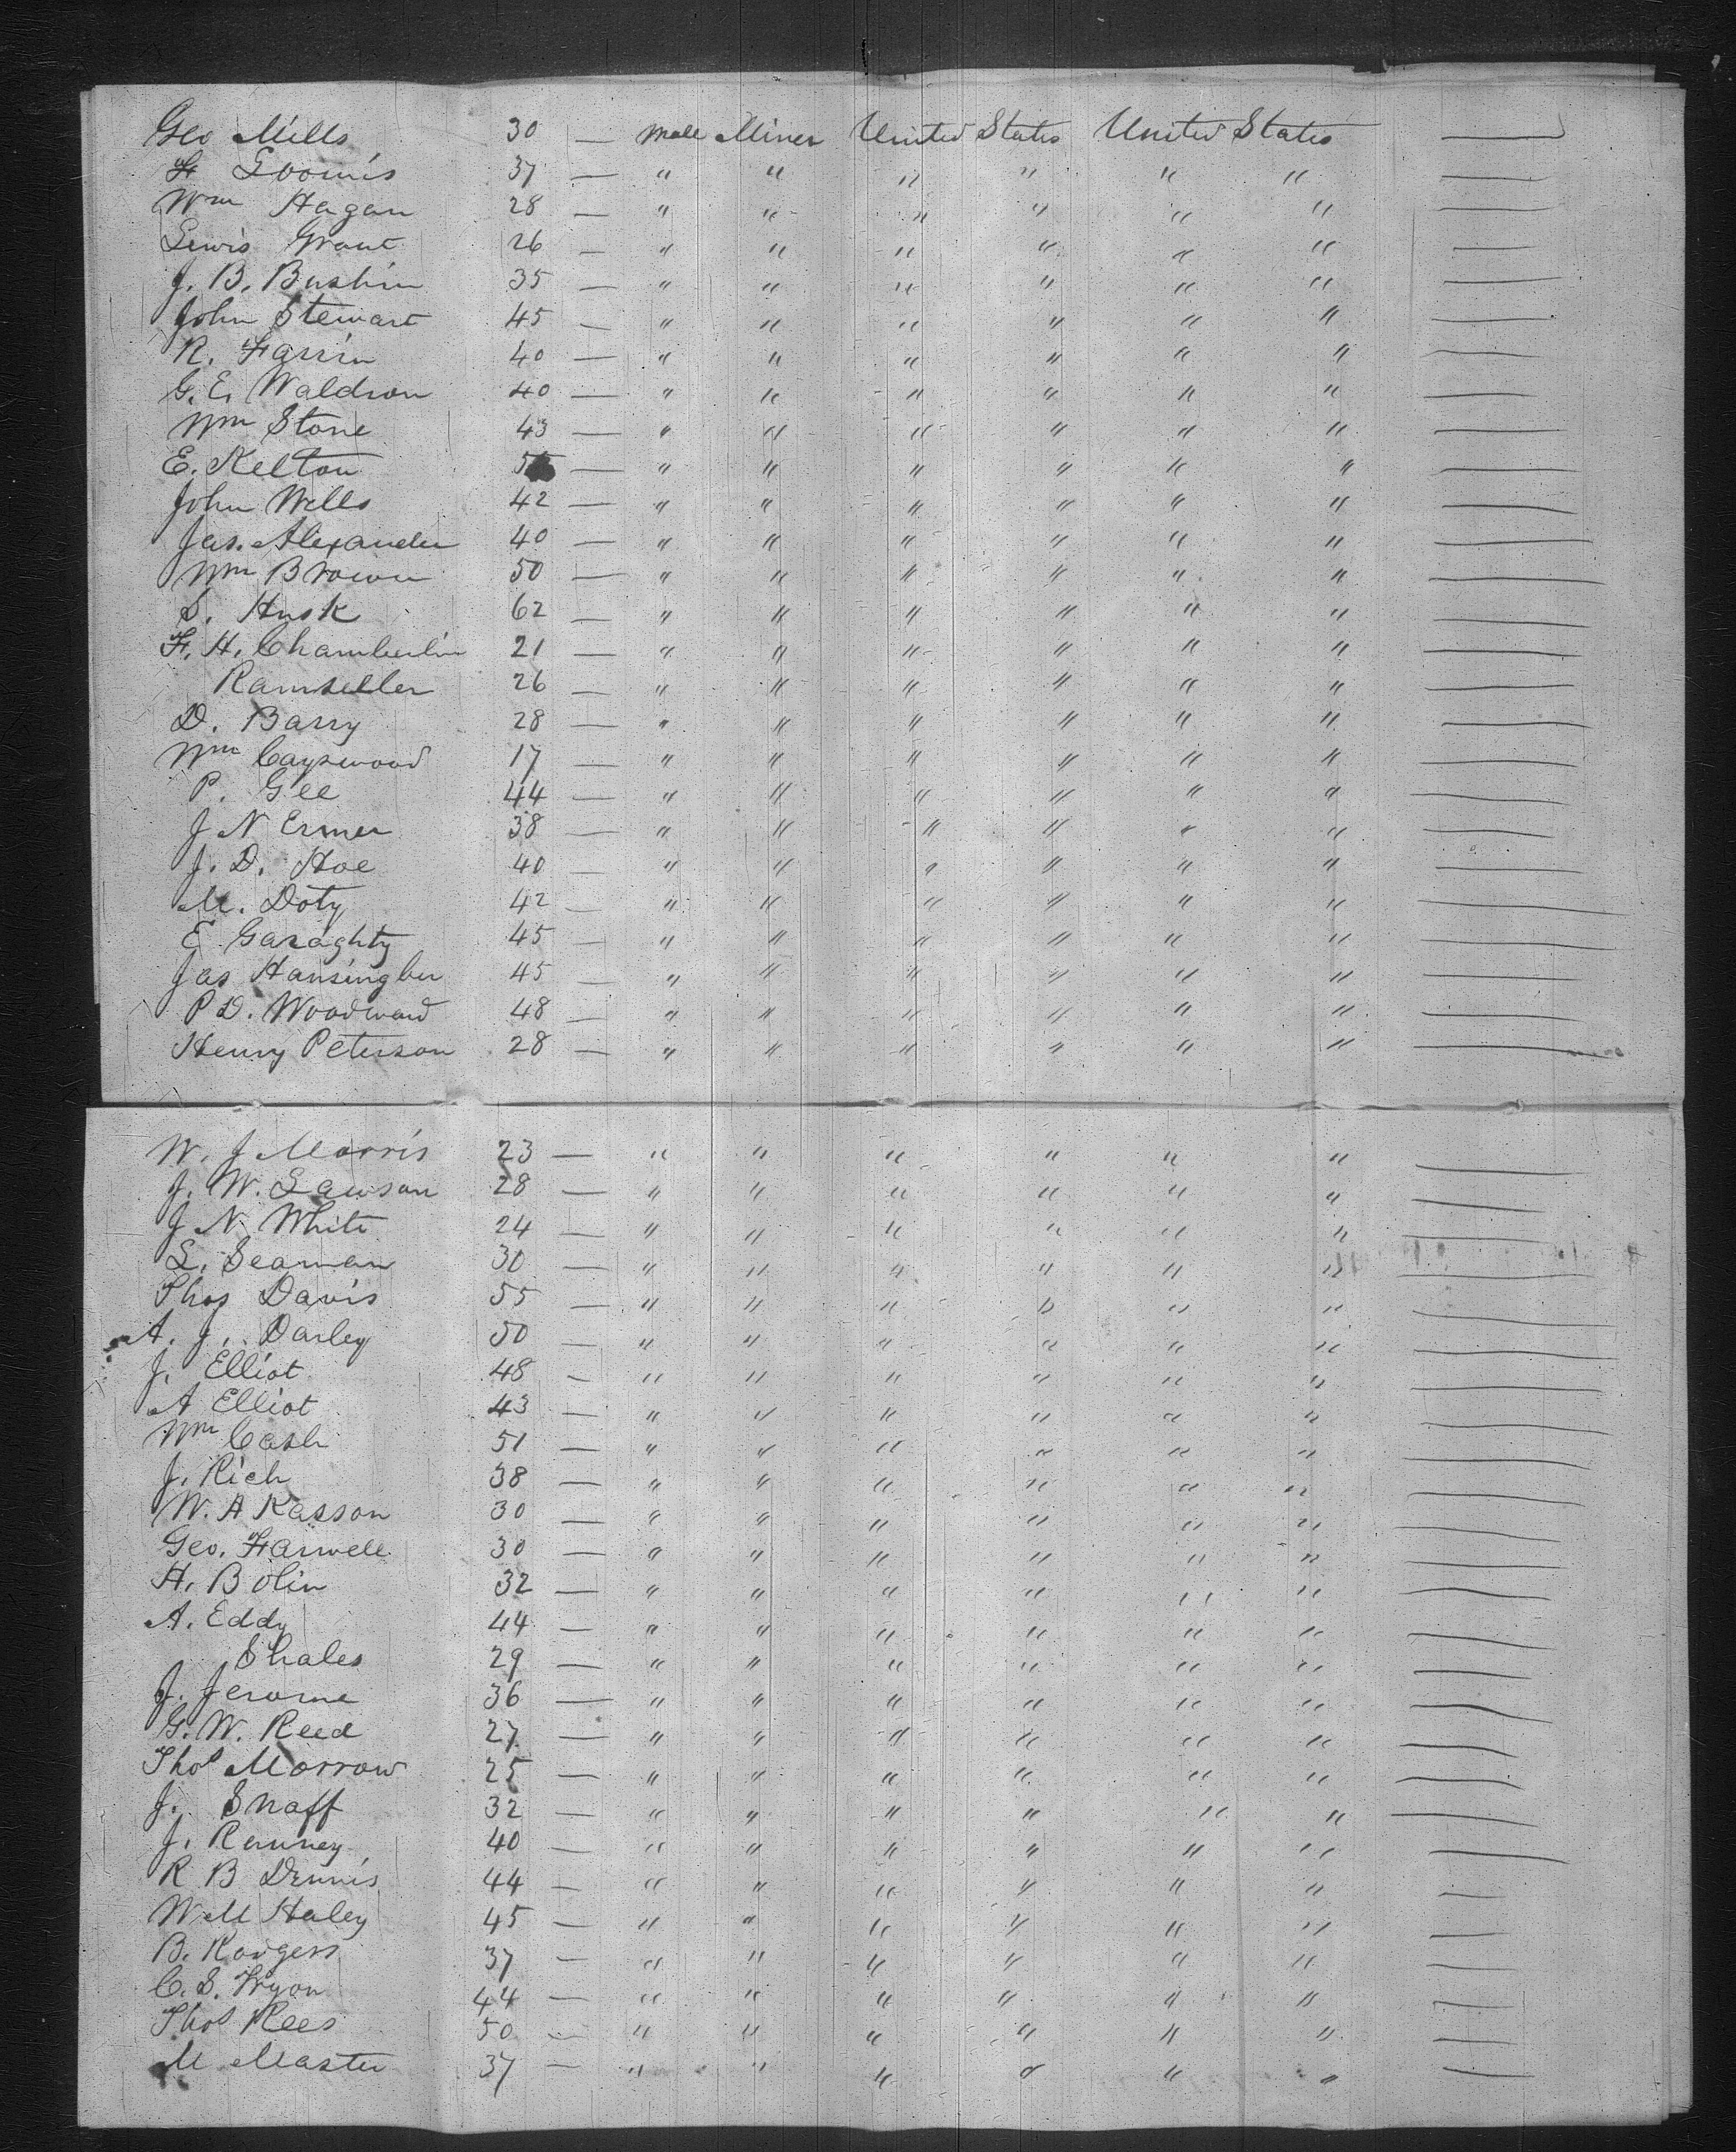 Geo Mills 30 — Male Miner United States United States —
F Loomis 37 — " " " " " " —
Wm Hagan 28 — " " " " " " —
Lewis Grant 26 — " " " " " " —
J. B. Bushin 35 — " " " " " " —
John Stewart 45 — " " " " " " —
R. Farrin 40 — " " " " " " —
G. E. Waldron 40 — " " " " " " —
Wm Stone 43 — " " " " " " —
E. Kelton — " " " " " " —
John Wells 42 — " " " " " " —
Jas. Alexander 40 — " " " " " " —
Wm Brown 50 — " " " " " " —
S. Husk 62 — " " " " " " —
F. H. Chamberlin 21 — " " " " " " —
Ramseller 26 — " " " " " " —
D. Barry 28 — " " " " " " —
Wm Cayswood 17 — " " " " " " —
P. Gee 44 — " " " " " " —
J N Ermer 38 — " " " " " " —
J. D. Hoe 40 — " " " " " " —
M. Doty 42 — " " " " " " —
E Garaghty 45 — " " " " " " —
Jas Hansingber 45 — " " " " " " —
P D. Woodward 48 — " " " " " " —
Henry Peterson 28 — " " " " " " —
W. J Morris 23 — " " " " " " —
J. W. Lawson 28 — " " " " " " —
J N. White 24 — " " " " " " —
L. Seaman 30 — " " " " " " —
Thos Davis 55 — " " " " " " —
A. J. Darley 50 — " " " " " " —
J. Elliot 48 — " " " " " " —
A Elliot 43 — " " " " " " —
Wm Cash 51 — " " " " " " —
J. Rich 38 — " " " " " " —
W. A Kasson 30 — " " " " " " —
Geo. Farwell 30 — " " " " " " —
H. Bolin 32 — " " " " " " —
A. Eddy 44 — " " " " " " —
Shales 29 — " " " " " " —
J. Jerome 36 — " " " " " " —
G. W. Reed 27 — " " " " " " —
Thos Morrow 25 — " " " " " " —
J. Shaff 32 — " " " " " " —
J. Ranney 40 — " " " " " " —
R B Dennis 44 — " " " " " " —
W M Haley 45 — " " " " " " —
B. Rodgers 37 — " " " " " " —
C. S. Tryon 44 — " " " " " " —
Thos Rees 50 — " " " " " " —
M Master 37 — " " " " " " —